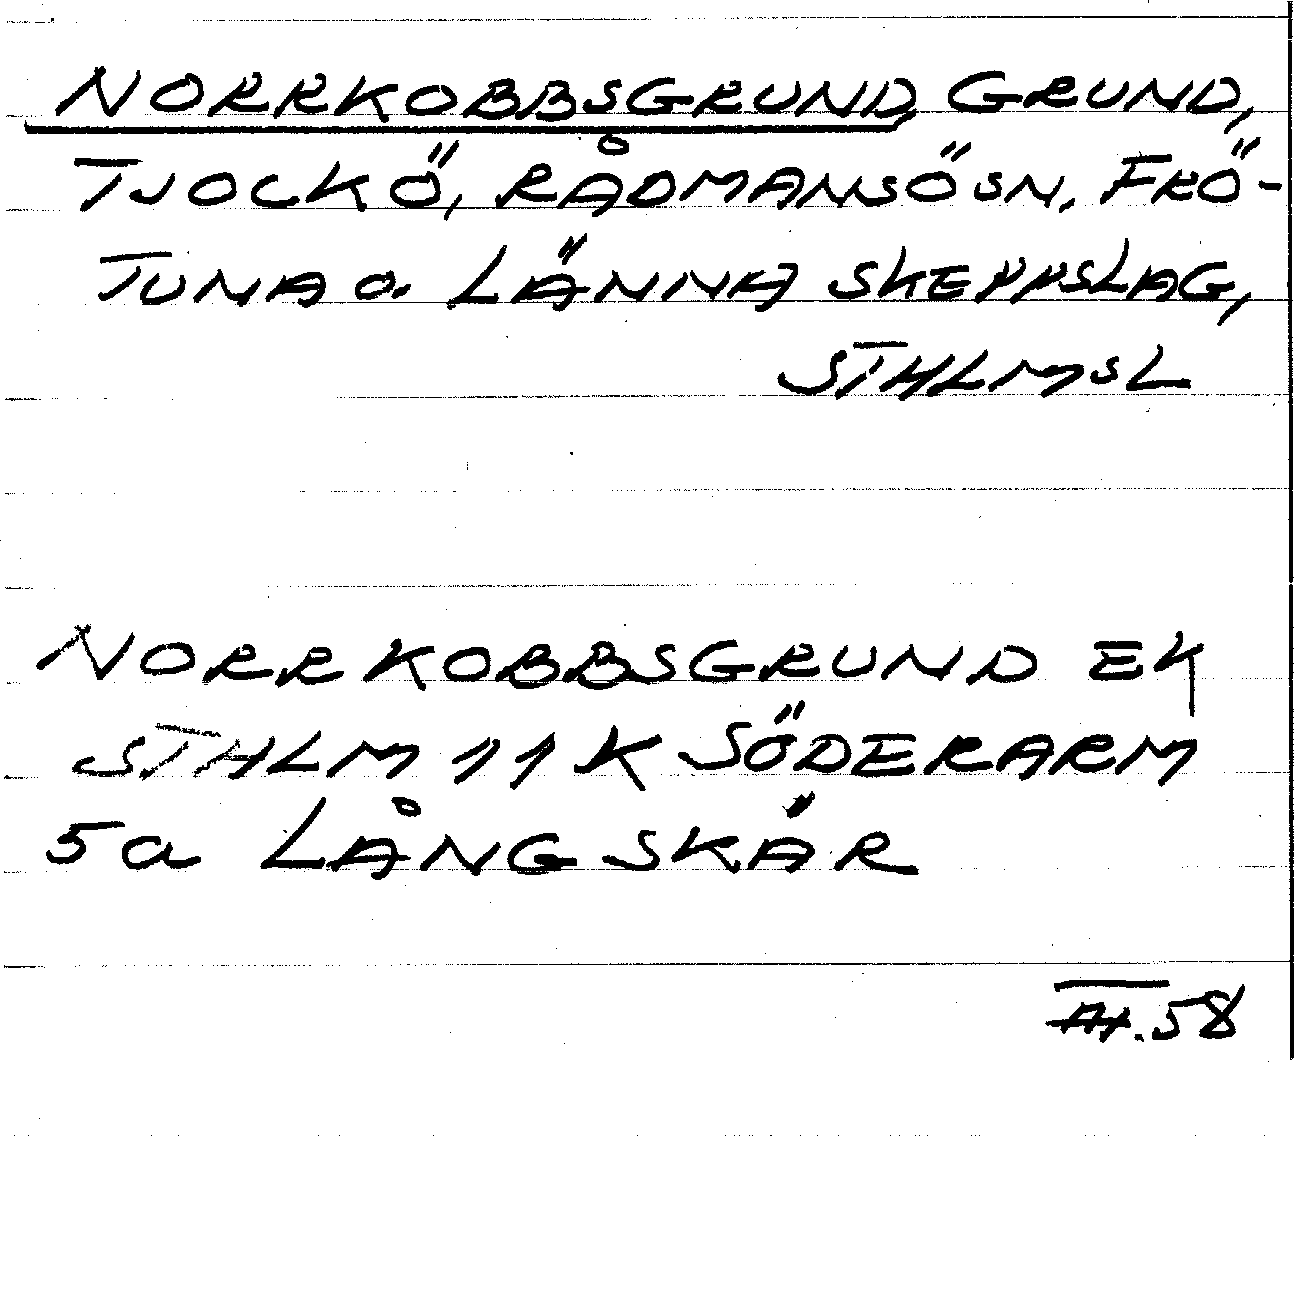 NORRKOBBSGRUND, GRUND,
TJOCKÖ, RÅDMANSÖ SN, FRÖ-
TUNA o. LÄNNA SKEPPSLAG,
STHLMS L
NORRKOBBSGRUND EK
STHLM 11 K SÖDERARM
5a LÅNGSKÄR
.58